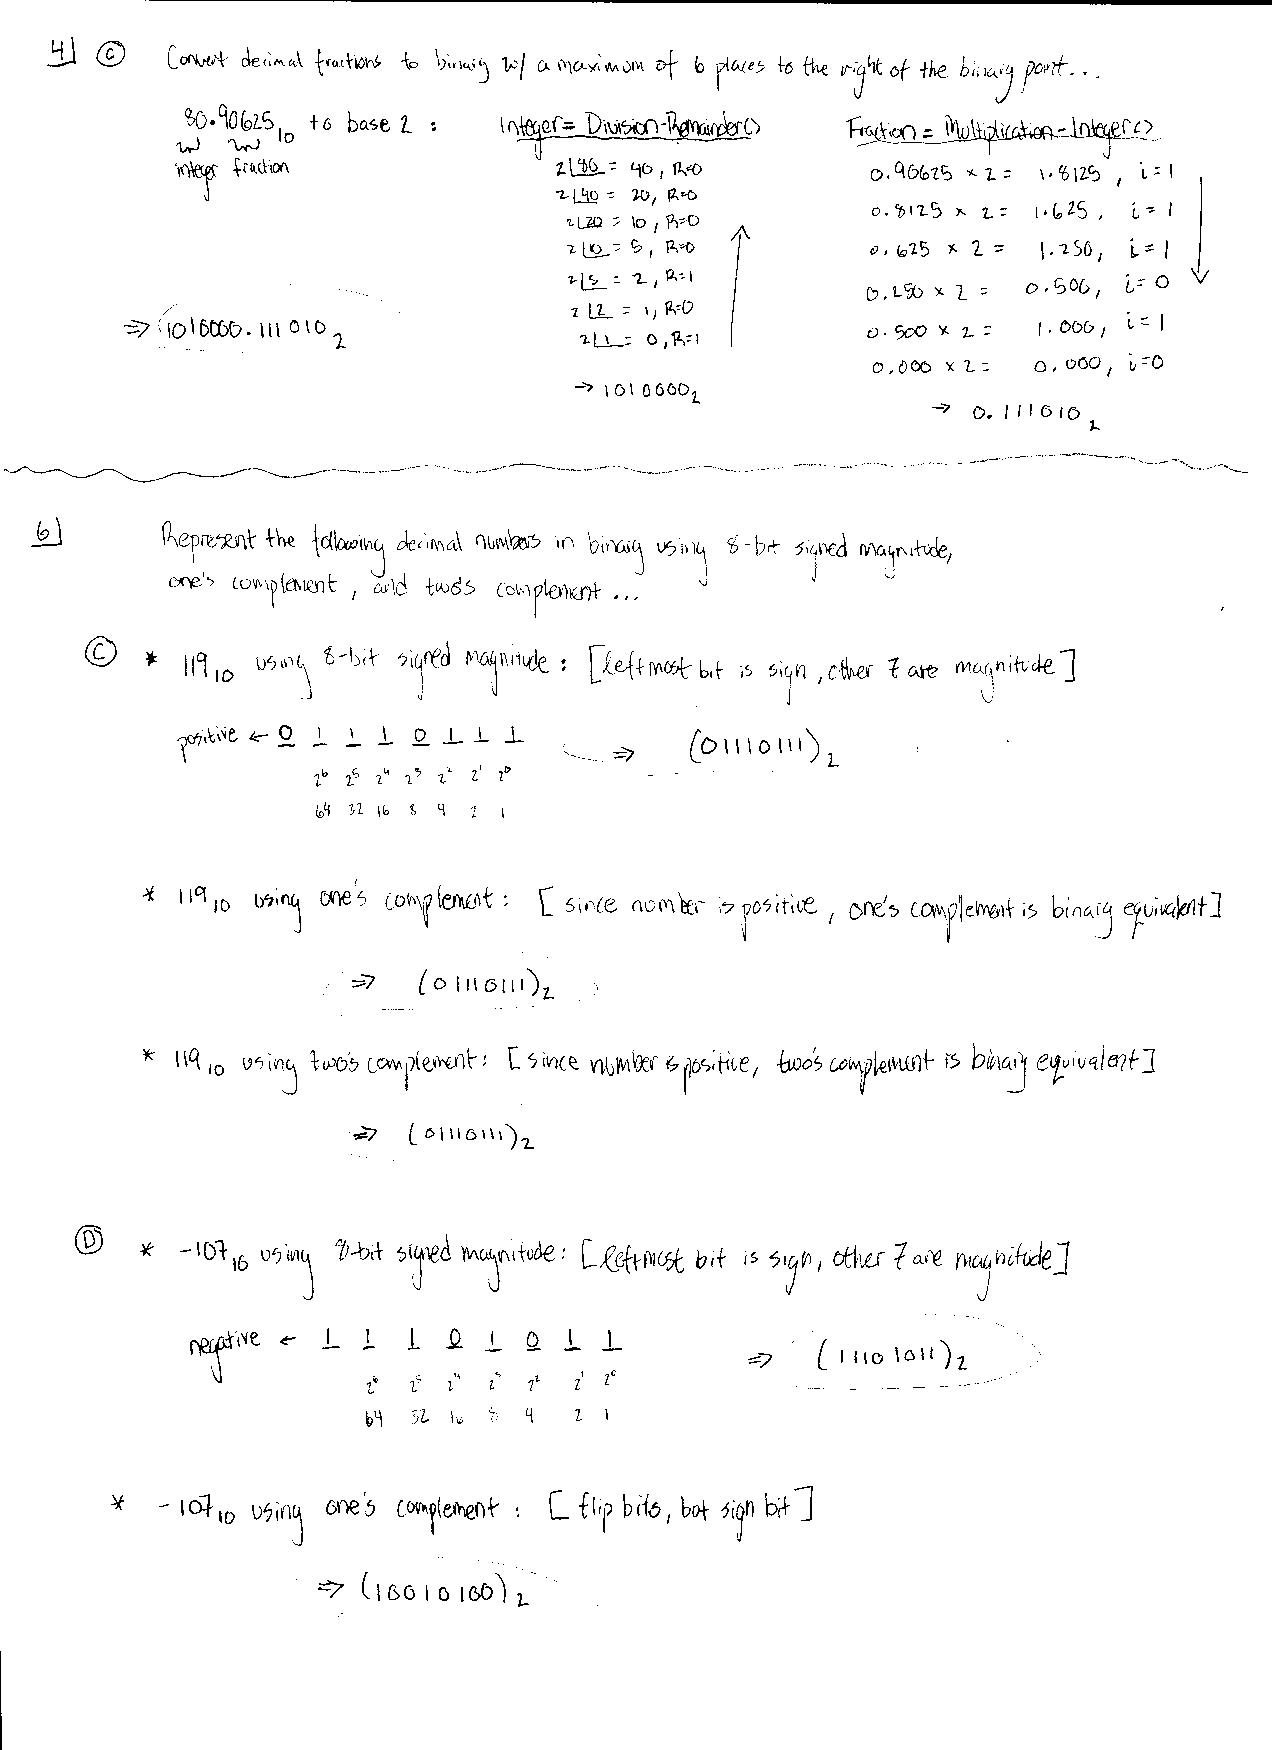 4] (C) Convert decimal fractions to binary w/ a maximum of 6 places to the right of the binary point...
80.90625₁₀ to base 2 :
integer fraction
⇒ 1010000.111010₂
Integer = Division-Remainder()
2⌊80 = 40, R=0
2⌊40 = 20, R=0
2⌊20 = 10, R=0
2⌊10 = 5, R=0
2⌊5 = 2, R=1
2⌊2 = 1, R=0
2⌊1 = 0, R=1
→ 1010000₂
Fraction = Multiplication-Integer()
0.90625 × 2 = 1.8125, i=1
0.8125 × 2 = 1.625, i=1
0.625 × 2 = 1.250, i=1
0.250 × 2 = 0.500, i=0
0.500 × 2 = 1.000, i=1
0.000 × 2 = 0.000, i=0
→ 0.111010₂
6] Represent the following decimal numbers in binary using 8-bit signed magnitude,
one's complement, and two's complement ...
(C) * 119₁₀ using 8-bit signed magnitude: [leftmost bit is sign, other 7 are magnitude]
positive ← 0 1 1 1 0 1 1 1 ⇒ (01110111)₂
2⁶ 2⁵ 2⁴ 2³ 2² 2¹ 2⁰
64 32 16 8 4 2 1
* 119₁₀ using one's complement: [since number is positive, one's complement is binary equivalent]
⇒ (01110111)₂
* 119₁₀ using two's complement: [since number is positive, two's complement is binary equivalent]
⇒ (01110111)₂
(D) * -107₁₀ using 8-bit signed magnitude: [leftmost bit is sign, other 7 are magnitude]
negative ← 1 1 1 0 1 0 1 1 ⇒ (11101011)₂
2⁶ 2⁵ 2⁴ 2³ 2² 2¹ 2⁰
64 32 16 8 4 2 1
* -107₁₀ using one's complement : [flip bits, but sign bit]
⇒ (10010100)₂